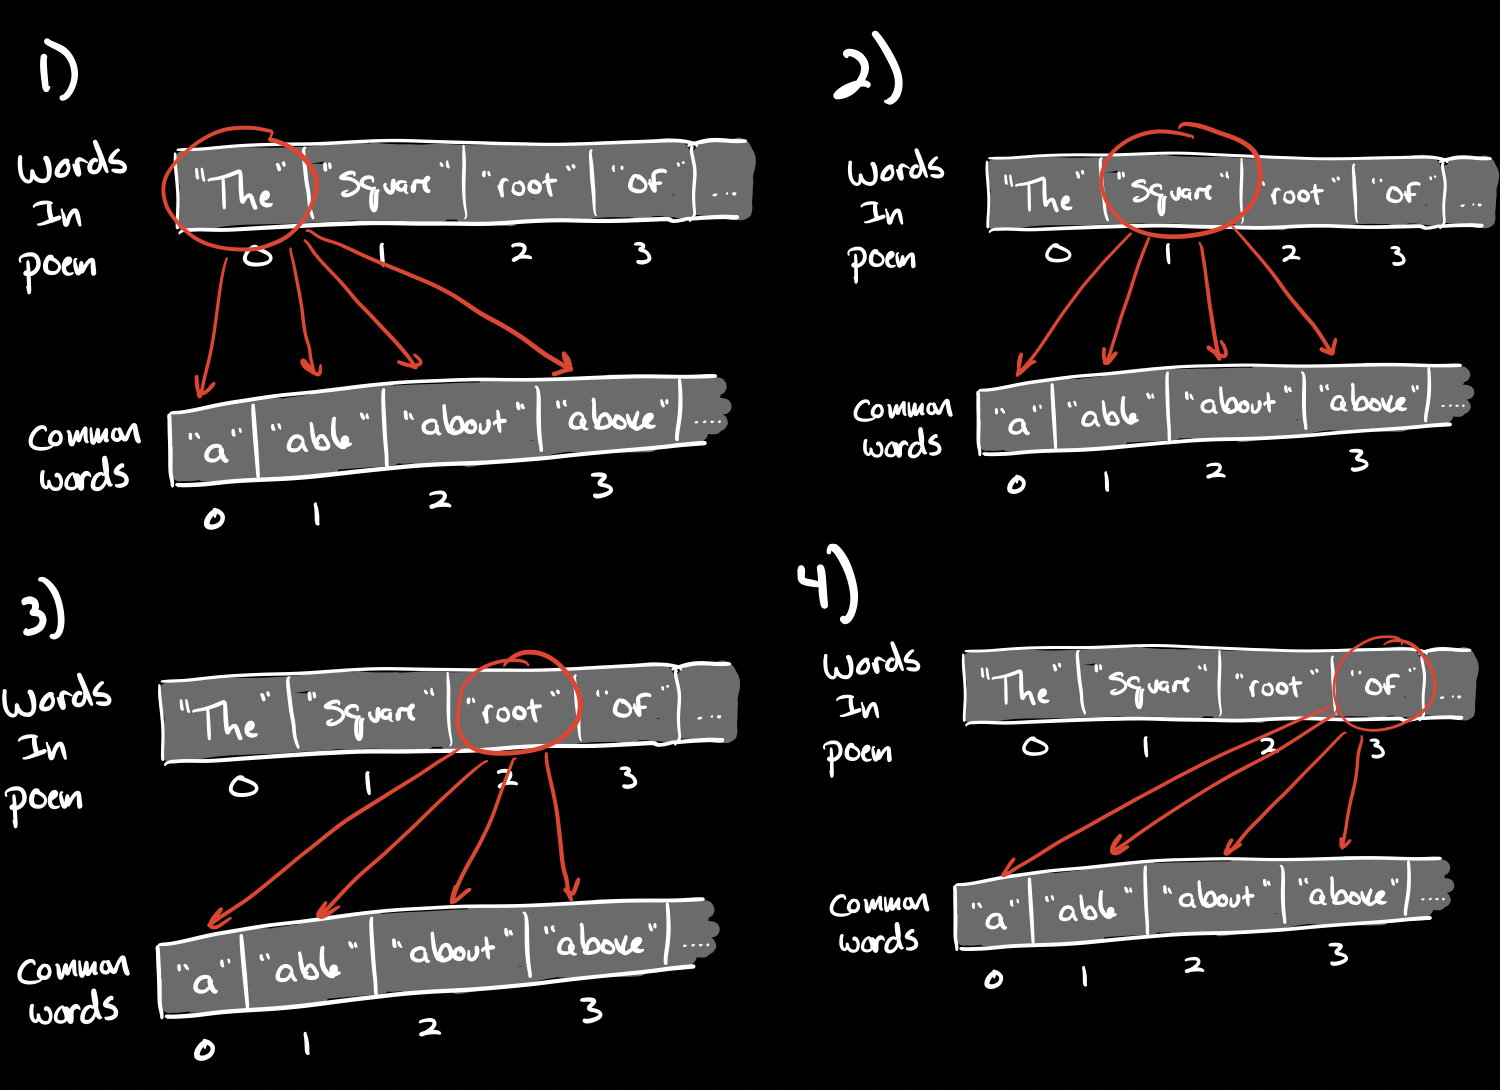 1)
Words
In
poem
"The" "Square" "root" "of" ...
0 1 2 3
Common
words
"a" "able" "about" "above" ....
0 1 2 3
2)
Words
In
poem
"The" "Square" "root" "of" ...
0 1 2 3
Common
words
"a" "able" "about" "above" ....
0 1 2 3
3)
Words
In
poem
"The" "Square" "root" "of" ...
0 1 2 3
Common
words
"a" "able" "about" "above" ....
0 1 2 3
4)
Words
In
poem
"The" "Square" "root" "of" ...
0 1 2 3
Common
words
"a" "able" "about" "above" ....
0 1 2 3